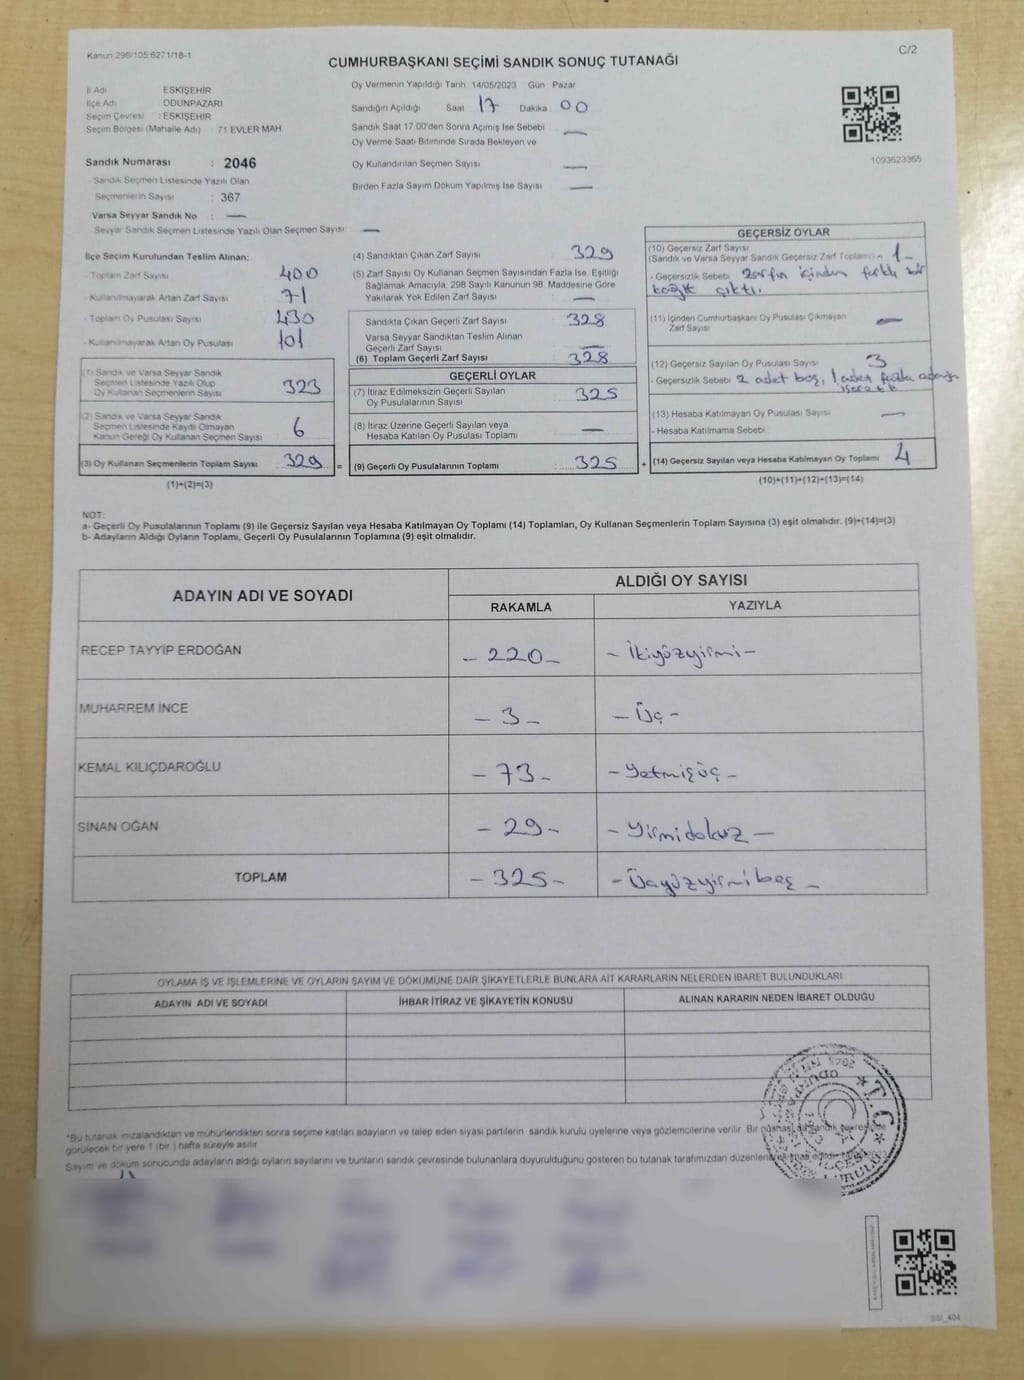 Kanun 298/105 6271/18-1
C/2
CUMHURBAŞKANI SEÇİMİ SANDIK SONUÇ TUTANAĞI
İl Adı ESKİŞEHİR
İlçe Adı ODUNPAZARI
Seçim Çevresi : ESKİŞEHİR
Seçim Bölgesi (Mahalle Adı) : 71 EVLER MAH
Sandık Numarası : 2046
- Sandık Seçmen Listesinde Yazılı Olan
Seçmenlerin Sayısı : 367
Varsa Seyyar Sandık No : —
- Seyyar Sandık Seçmen Listesinde Yazılı Olan Seçmen Sayısı: —
Oy Vermenin Yapıldığı Tarih 14/05/2023 Gün Pazar
Sandığın Açıldığı Saat 17 Dakika 00
Sandık Saat 17:00'den Sonra Açımış İse Sebebi —
Oy Verme Saati Bitiminde Sırada Bekleyen ve
Oy Kullandırılan Seçmen Sayısı —
Birden Fazla Sayım Döküm Yapılmış İse Sayısı —
1093623365
İlçe Seçim Kurulundan Teslim Alınan;
- Toplam Zarf Sayısı 400
- Kullanılmayarak Artan Zarf Sayısı 71
- Toplam Oy Pusulası Sayısı 430
- Kullanılmayarak Artan Oy Pusulası 101
(1) Sandık ve Varsa Seyyar Sandık
Seçmen Listesinde Yazılı Olup
Oy Kullanan Seçmenlerin Sayısı 323
(2) Sandık ve Varsa Seyyar Sandık
Seçmen Listesinde Kaydı Olmayan
Kanun Gereği Oy Kullanan Seçmen Sayısı 6
(3) Oy Kullanan Seçmenlerin Toplam Sayısı 329 =
(1)+(2)=(3)
(4) Sandıktan Çıkan Zarf Sayısı 329
(5) Zarf Sayısı Oy Kullanan Seçmen Sayısından Fazla İse, Eşitliği
Sağlamak Amacıyla, 298 Sayılı Kanunun 98. Maddesine Göre
Yakılarak Yok Edilen Zarf Sayısı —
Sandıkta Çıkan Geçerli Zarf Sayısı 328
Varsa Seyyar Sandıktan Teslim Alınan
Geçerli Zarf Sayısı —
(6) Toplam Geçerli Zarf Sayısı 328
GEÇERLİ OYLAR
(7) İtiraz Edilmeksizin Geçerli Sayılan
Oy Pusulalarının Sayısı 325
(8) İtiraz Üzerine Geçerli Sayılan veya
Hesaba Katılan Oy Pusulası Toplamı —
(9) Geçerli Oy Pusulalarının Toplamı : 325 +
GEÇERSİZ OYLAR
(10) Geçersiz Zarf Sayısı
(Sandık ve Varsa Seyyar Sandık Geçersiz Zarf Toplamı) - 1 -
- Geçersizlik Sebebi Zarfın içinden farklı bir
kağıt çıktı.
(11) İçinden Cumhurbaşkanı Oy Pusulası Çıkmayan
Zarf Sayısı —
(12) Geçersiz Sayılan Oy Pusulası Sayısı 3
- Geçersizlik Sebebi 2 adet boş, 1 adet fazla adaya
(13) Hesaba Katılmayan Oy Pusulası Sayısı —
- Hesaba Katılmama Sebebi
(14) Geçersiz Sayılan veya Hesaba Katılmayan Oy Toplamı 4
(10)+(11)+(12)+(13)=(14)
NOT:
a- Geçerli Oy Pusulalarının Toplamı (9) ile Geçersiz Sayılan veya Hesaba Katılmayan Oy Toplamı (14) Toplamları, Oy Kullanan Seçmenlerin Toplam Sayısına (3) eşit olmalıdır. (9)+(14)=(3)
b- Adayların Aldığı Oyların Toplamı, Geçerli Oy Pusulalarının Toplamına (9) eşit olmalıdır.
ADAYIN ADI VE SOYADI
ALDIĞI OY SAYISI
RAKAMLA YAZIYLA
RECEP TAYYİP ERDOĞAN - 220 - - İkiyüzyirmi -
MUHARREM İNCE - 3 - - Üç -
KEMAL KILIÇDAROĞLU - 73 - - Yetmişüç -
SİNAN OĞAN - 29 - - Yirmidokuz -
TOPLAM - 325 - - Üçyüzyirmibeş -
OYLAMA İŞ VE İŞLEMLERİNE VE OYLARIN SAYIM VE DÖKÜMÜNE DAİR ŞİKAYETLERLE BUNLARA AİT KARARLARIN NELERDEN İBARET BULUNDUKLARI
ADAYIN ADI VE SOYADI İHBAR İTİRAZ VE ŞİKAYETİN KONUSU ALINAN KARARIN NEDEN İBARET OLDUĞU
*Bu tutanak imzalandıktan ve mühürlendikten sonra seçime katılan adayların ve talep eden siyasi partilerin sandık kurulu üyelerine veya gözlemcilerine verilir. Bir nüshası da sandık çevresinde
görülecek bir yere 1 (bir) hafta süreyle asılır.
Sayım ve döküm sonucunda adayların aldığı oyların sayılarını ve bunların sandık çevresinde bulunanlara duyurulduğunu gösteren bu tutanak tarafımızdan düzenlenerek imza edildi.
T.C.